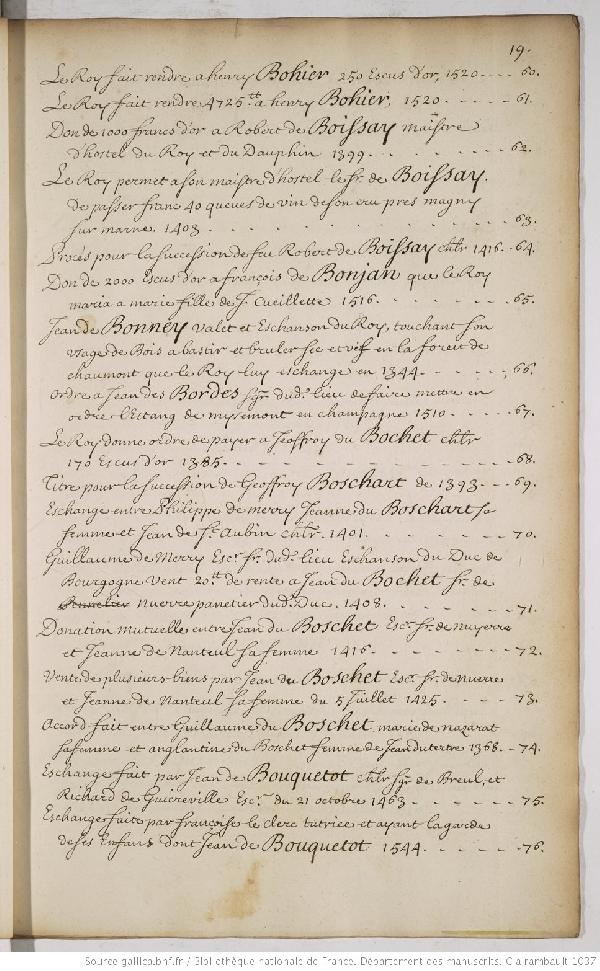 19.
Le Roy fait rendre a henry Bohier 250 Escus d'or, 1520 ---- 60.
Le Roy fait rendre 4725tt a henry Bohier, 1520 - - - - - 61.
Don de 1000 francs d'or a Robert de Boissay maistre
d'hostel du Roy et du Dauphin 1399. - - - - - - 62.
Le Roy permet a son maistre d'hostel le Sr. de Boissay.
de passer franc 40 queues de vin de son cru pres magny
sur marne 1403 - - - - - - - - - - 63.
Procés pour la succession de feu Robert de Boissay chlr 1416 -- 64.
Don de 2000 Escus d'or a françois de Bonjan que le Roy
maria a marie fille de J. Cueillette 1516 - - - - - - 65.
Jean de Bonney valet et Eschanson du Roy, touchant son
usage de Bois a bastir et bruler sec et vert en la forest de
chaumont que le Roy luy eschange en 1344 - - - - - 66.
Ordre a Jean des Bordes sgr. dud. lieu de faire mettre en
ordre l'Estang de mysemont en champagne 1510 - - - - 67.
Le Roy donne ordre de payer a Jeoffroy du Bochet chlr
170 Escus d'or 1385 - - - - - - - - - 68.
Titre pour la succession de Geoffroy Boschart de 1393 --- 69.
Eschange entre Philippe de merry Jeanne du Boschart sa
femme et Jean de St. Aubin chlr. 1401 - - - - - - 70.
Guillaume de Merry Escr. sr. dud. lieu Eschanson du Duc de
Bourgogne vent 20tt de rente a Jean du Bochet sr. de
Nuerre panetier dud. Duc. 1408. - - - - - - 71.
Donation mutuelle entre Jean du Boschet Escr. sr. de nuyerre
et Jeanne de Nanteuil sa femme 1416 - - - - - - 72.
Vente de plusieurs biens par Jean du Boschet Escr. sr. de nuerre
et Jeanne de Nanteuil sa femme du 5 Juillet 1425. - - - - 73.
Accord fait entre Guillaume du Boschet, marie de nazarat
sa femme et anglantine du Boschet femme de Jean du tertre 1368. -- 74.
Eschange fait par Jean de Bouquetot chlr sgr. de Breul, et
Richard de Guiereville Escr. du 21 octobre 1463 - - - - - - 75.
Eschange faite par françoise le clerc tutrice et ayant la garde
de ses Enfans dont Jean de Bouquetot 1544 - - - - 76.
Source gallica.bnf.fr / Bibliothèque nationale de France. Département des manuscrits. Clairambault 1037